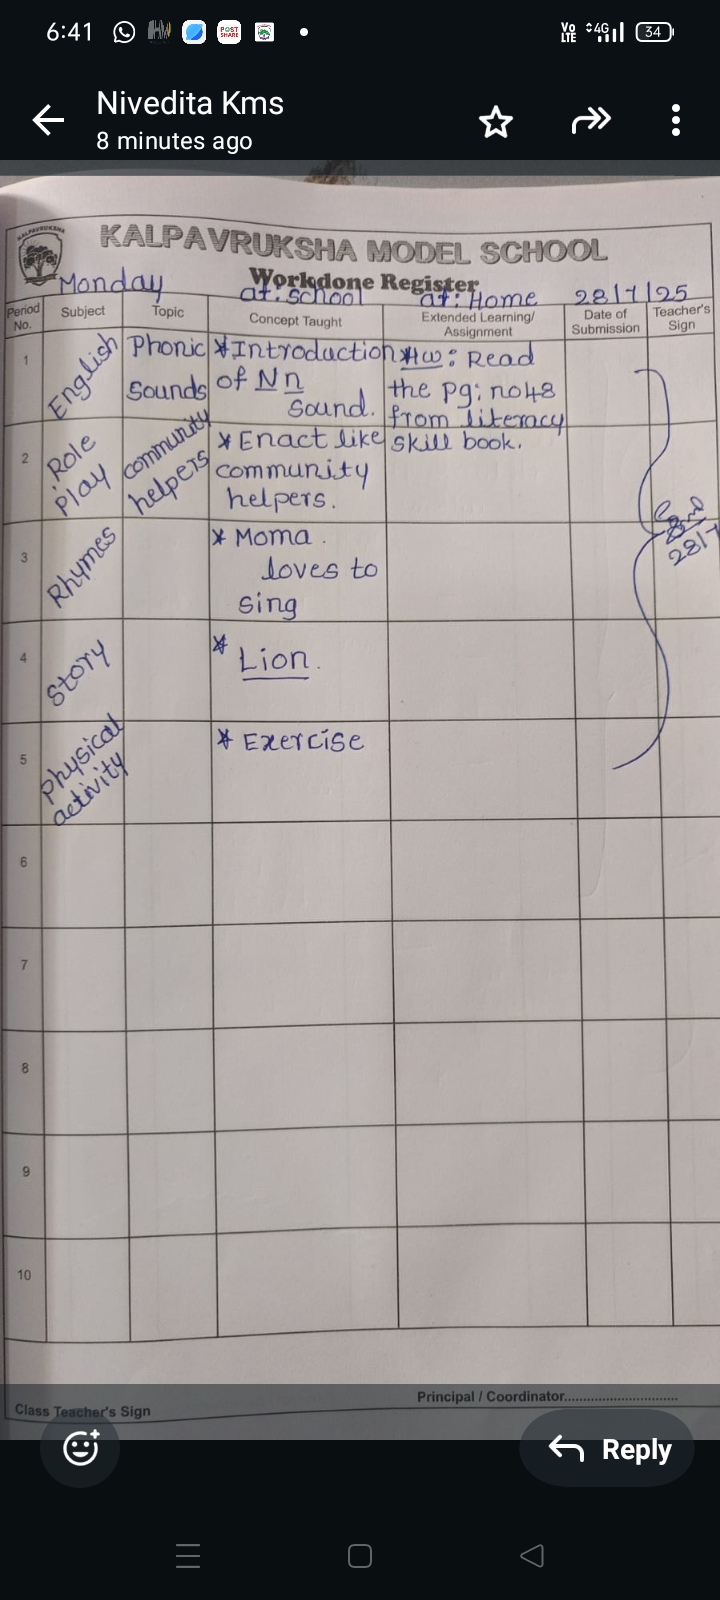 6:41
Vo LTE 4G 34
Nivedita Kms
8 minutes ago
KALPAVRUKSHA
KALPAVRUKSHA MODEL SCHOOL
Workdone Register
Monday at: School at: Home 28/7/25
Period No. Subject Topic Concept Taught Extended Learning/ Assignment Date of Submission Teacher's Sign
1 English Phonic Sounds * Introduction of Nn Sound. * Hw: Read the pg: no 48 from literacy skill book.
2 Role play community helpers * Enact like community helpers.
28/7
3 Rhymes * Moma loves to sing
4 Story * Lion.
5 Physical activity * Exercise
6
7
8
9
10
Principal / Coordinator..............................
Class Teacher's Sign
Reply